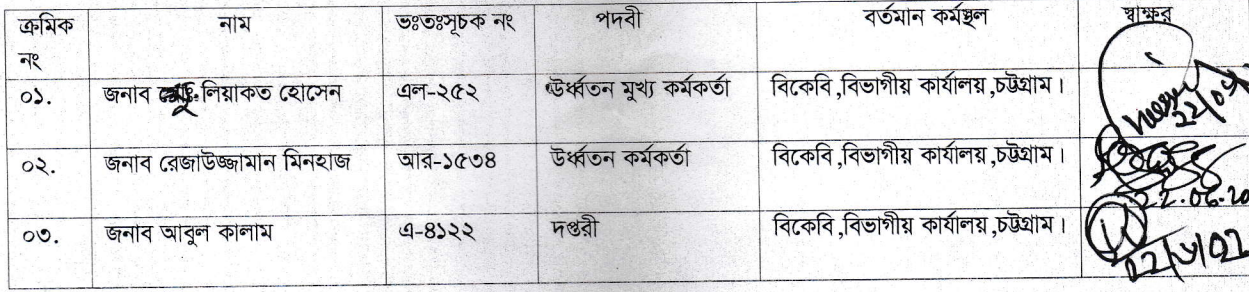 ক্রমিক নং নাম ভঃতঃসূচক নং পদবী বর্তমান কর্মস্থল স্বাক্ষর
০১. জনাব মোঃ লিয়াকত হোসেন এল-২৫২ উর্ধ্বতন মুখ্য কর্মকর্তা বিকেবি,বিভাগীয় কার্যালয়,চট্টগ্রাম।
০২. জনাব রেজাউজ্জামান মিনহাজ আর-১৫৩৪ উর্ধ্বতন কর্মকর্তা বিকেবি,বিভাগীয় কার্যালয়,চট্টগ্রাম।
22.06.20
০৩. জনাব আবুল কালাম এ-৪১২২ দপ্তরী বিকেবি,বিভাগীয় কার্যালয়,চট্টগ্রাম।